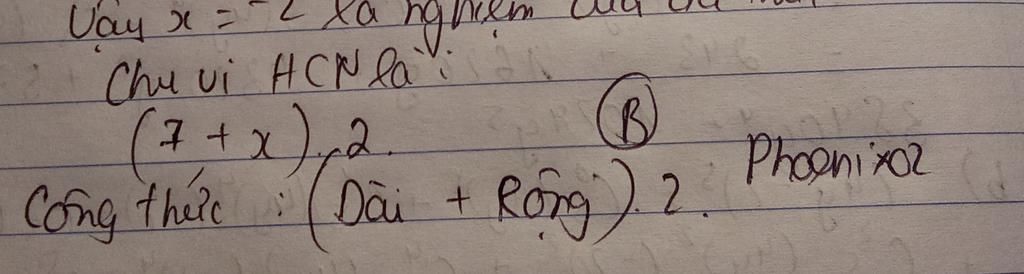 Vậy x = -2 là nghiệm của đa
Chu vi HCN là:
(7 + x).2. (B)
Công thức : (Dài + Rộng).2. Phoenixoz